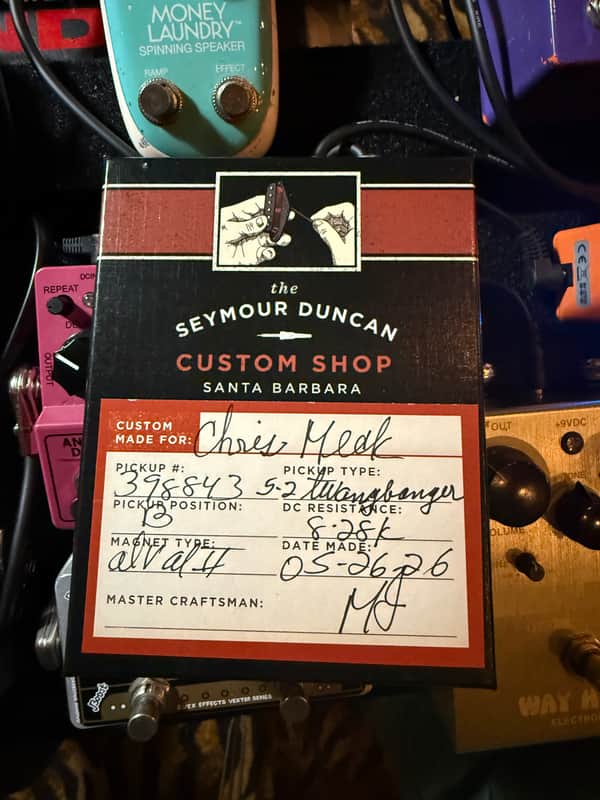 MONEY
LAUNDRY™
SPINNING SPEAKER
RAMP EFFECT
the
SEYMOUR DUNCAN
CUSTOM SHOP
SANTA BARBARA
CUSTOM
MADE FOR: Chris Meak
PICKUP #: PICKUP TYPE:
398843 S-2 Twangbanger
PICKUP POSITION: DC RESISTANCE:
B 8.28K
MAGNET TYPE: DATE MADE:
05-26-26
MASTER CRAFTSMAN: MJ
REPEAT
OUTPUT
OUT
+9VDC
VOLUME
WAY H
ELECTRO
CE